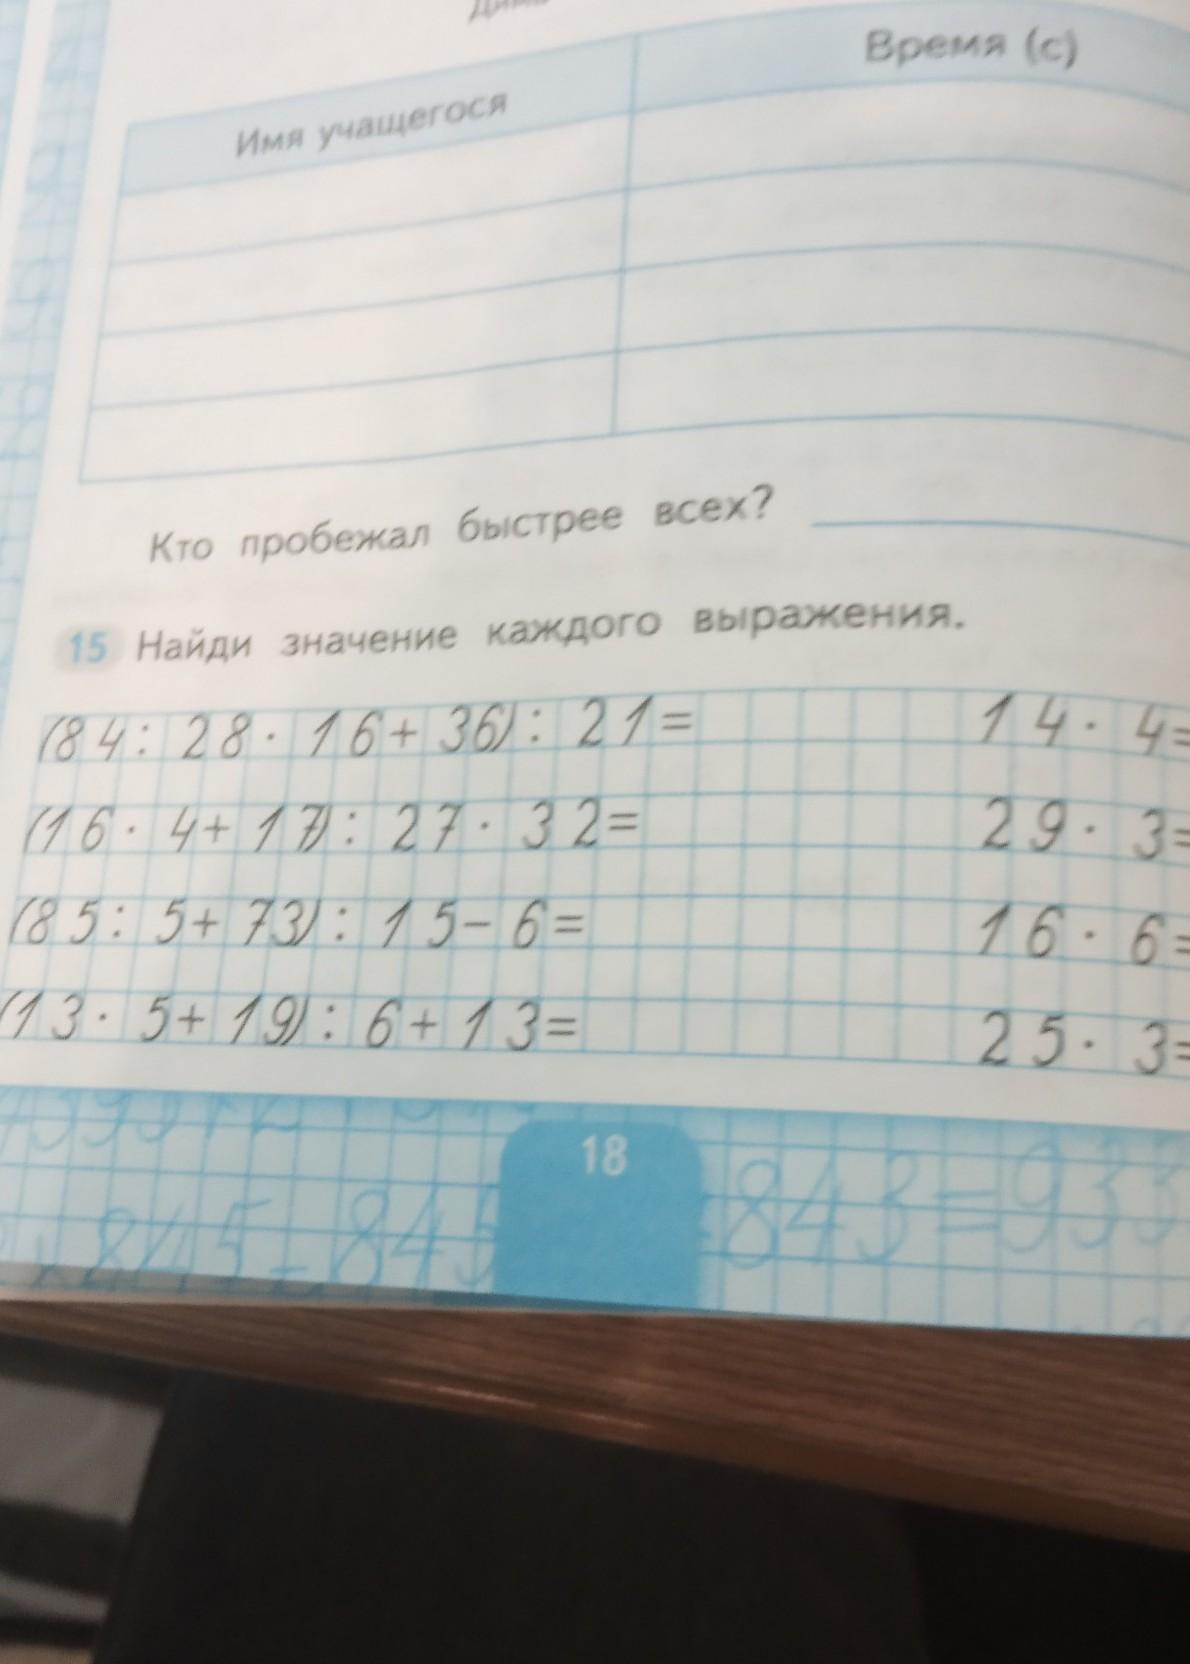 Имя учащегося
Время (с)
Кто пробежал быстрее всех?
15 Найди значение каждого выражения.
(84: 28· 16+ 36): 21=
14· 4=
(16· 4+ 17): 27· 32=
29· 3=
(85: 5+ 73): 15– 6=
16· 6=
(13· 5+ 19): 6+ 13=
25· 3=
18
845 – 845
843=933